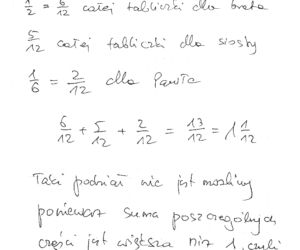 1/2 = 6/12 całej tabliczki dla brata
5/12 całej tabliczki dla siostry
1/6 = 2/12 dla Pawła
6/12 + 5/12 + 2/12 = 13/12 = 1 1/12
Taki podział nie jest możliwy
ponieważ suma poszczególnych
części jest większa niż 1, czyli